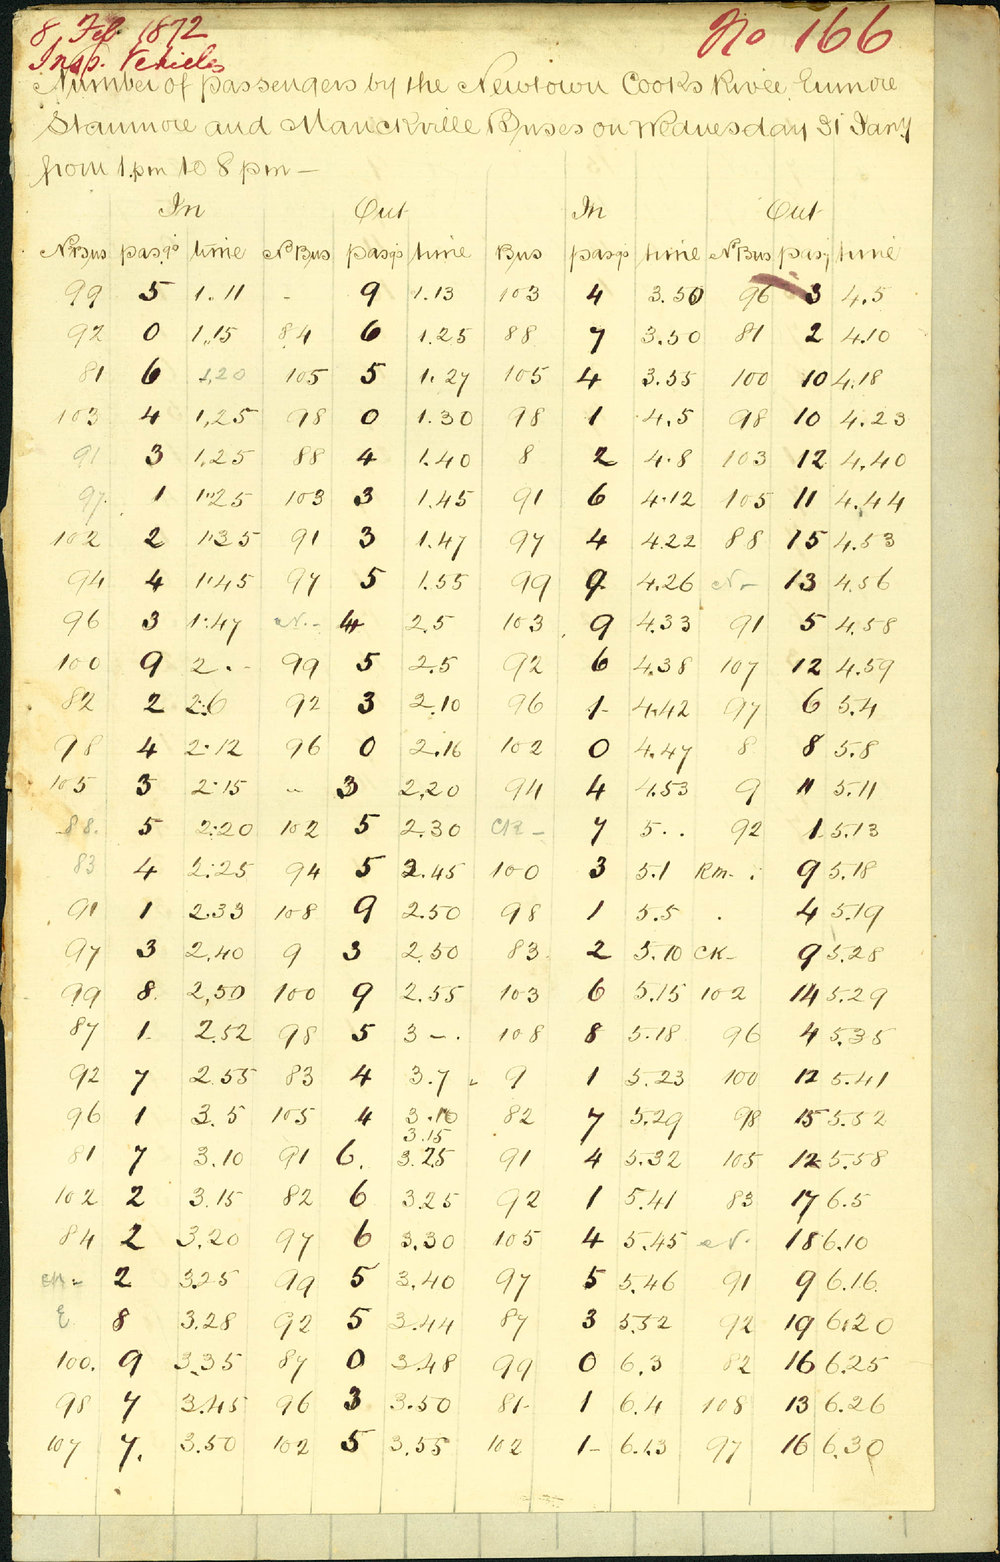 8 Feb 1872
Insp. Vehicles
No 166
Number of passengers by the Newtown Cooks River Enmore
Stanmore and Marrickville Buses on Wednesday 31 Jany
from 1 pm to 8 pm —
In Out In Out
No Bus pasgs time No Bus pasgs time Bus pasgs time No Bus pasg time
99 5 1.11 - 9 1.13 103 4 3.50 96 3 4.5
92 0 1.15 84 6 1.25 88 7 3.50 81 2 4.10
81 6 1.20 105 5 1.27 105 4 3.55 100 10 4.18
103 4 1.25 98 0 1.30 98 1 4.5 98 10 4.23
91 3 1.25 88 4 1.40 8 2 4.8 103 12 4.40
97 1 1.25 103 3 1.45 91 6 4.12 105 11 4.44
102 2 1.35 91 3 1.47 97 4 4.22 88 15 4.53
94 4 1.45 97 5 1.55 99 9 4.26 N- 13 4.56
96 3 1.47 N.- 4 2.5 103 9 4.33 91 5 4.58
100 9 2.- 99 5 2.5 92 6 4.38 107 12 4.59
82 2 2.6 92 3 2.10 96 1 4.42 97 6 5.4
98 4 2.12 96 0 2.16 102 0 4.47 8 8 5.8
105 3 2.15 - 3 2.20 94 4 4.53 9 11 5.11
88. 5 2.20 102 5 2.30 CR- 7 5.. 92 1 5.13
83 4 2.25 94 5 2.45 100 3 5.1 Rm. 9 5.18
91 1 2.33 108 9 2.50 98 1 5.5 . 4 5.19
97 3 2.40 9 3 2.50 83 2 5.10 CK- 9 5.28
99 8 2.50 100 9 2.55 103 6 5.15 102 14 5.29
87 1 2.52 98 5 3-. 108 8 5.18 96 4 5.35
92 7 2.55 83 4 3.7 9 1 5.23 100 12 5.41
96 1 3.5 105 4 3.10 82 7 5.29 98 15 5.52
3.15
81 7 3.10 91 6. 3.25 91 4 5.32 105 12 5.58
102 2 3.15 82 6 3.25 92 1 5.41 83 17 6.5
84 2 3.20 97 6 3.30 105 4 5.45 N. 18 6.10
2 3.25 99 5 3.40 97 5 5.46 91 9 6.16
E 8 3.28 92 5 3.44 87 3 5.52 92 19 6.20
100. 9 3.35 87 0 3.48 99 0 6.3 82 16 6.25
98 7 3.45 96 3 3.50 81 1 6.4 108 13 6.26
107 7. 3.50 102 5 3.55 102 1- 6.13 97 16 6.30